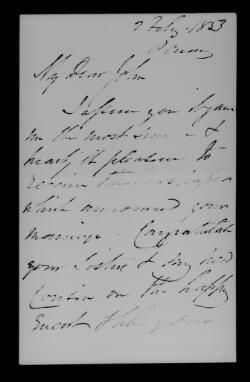 2 Feby. 1853
My Dear John
I assure you it gave
me the most sincere &
hearty pleasure to
receive
which announced your
marriage - Congratulate
your Sister & my new
Cousin on the happy
Event